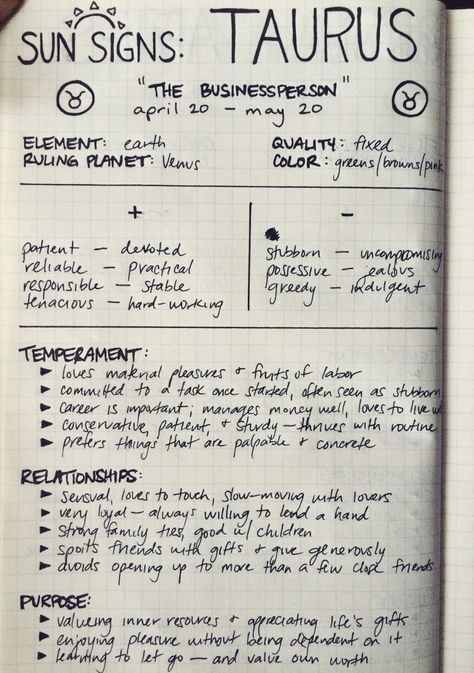 SUN SIGNS: TAURUS
"THE BUSINESSPERSON"
april 20 – may 20
ELEMENT: earth
QUALITY: fixed
RULING PLANET: Venus
COLOR: greens/browns/pink
+
-
patient – devoted
stubborn – uncompromising
reliable – practical
possessive – jealous
responsible – stable
greedy – indulgent
tenacious – hard-working
TEMPERAMENT:
► loves material pleasures & fruits of labor
► committed to a task once started, often seen as stubborn
► career is important; manages money well, loves to live
► conservative, patient, & sturdy – thrives with routine
► prefers things that are palpable & concrete
RELATIONSHIPS:
► sensual, loves to touch, slow-moving with lovers
► very loyal – always willing to lend a hand
► strong family ties, good w/ children
► spoils friends with gifts & give generously
► avoids opening up to more than a few close friends
PURPOSE:
► valueing inner resources & appreciating life's gifts
► enjoying pleasure without being dependent on it
► learning to let go – and value own worth